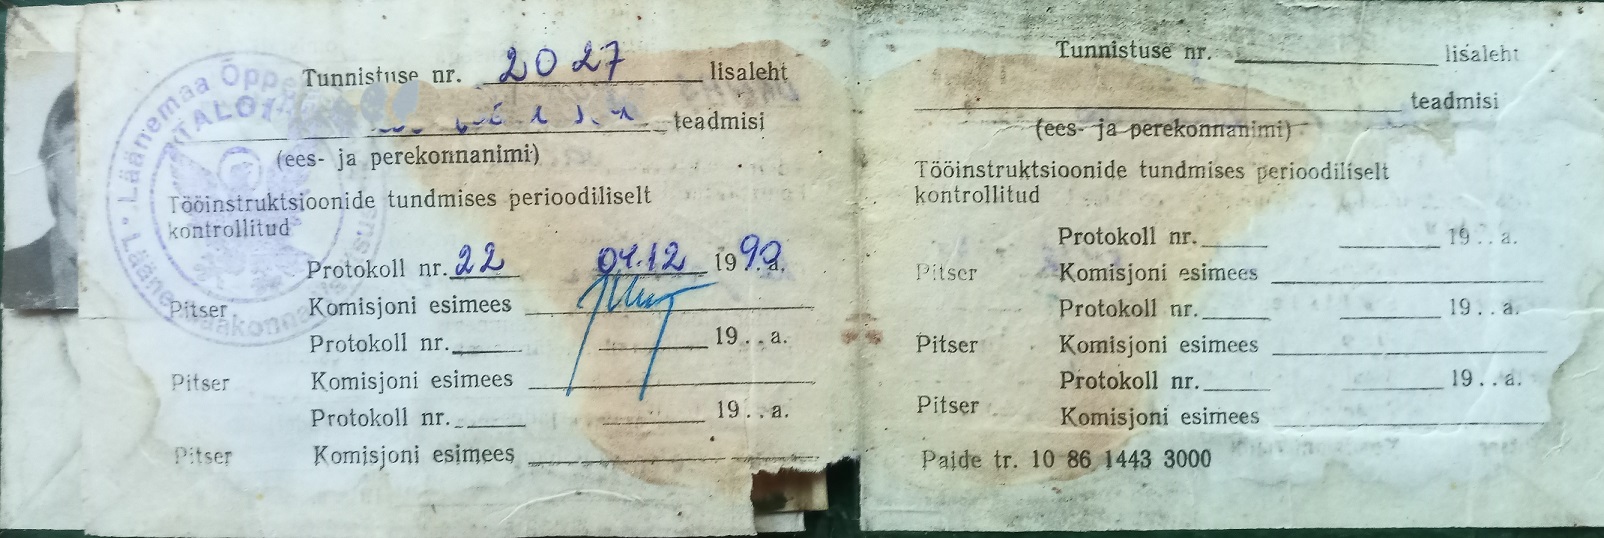 Tunnistuse nr. 2027 lisaleht
teadmisi
(ees- ja perekonnanimi)
Tööinstruktsioonide tundmises perioodiliselt
kontrollitud
Protokoll nr. 22 04.12 1990.a.
Pitser Komisjoni esimees
Protokoll nr. 19..a.
Pitser Komisjoni esimees
Protokoll nr. 19..a.
Pitser Komisjoni esimees
Läänemaa Õppe
Tunnistuse nr. lisaleht
teadmisi
(ees- ja perekonnanimi)
Tööinstruktsioonide tundmises perioodiliselt
kontrollitud
Protokoll nr. 19..a.
Pitser Komisjoni esimees
Protokoll nr. 19..a.
Pitser Komisjoni esimees
Protokoll nr. 19..a.
Pitser Komisjoni esimees
Paide tr. 10 86 1443 3000